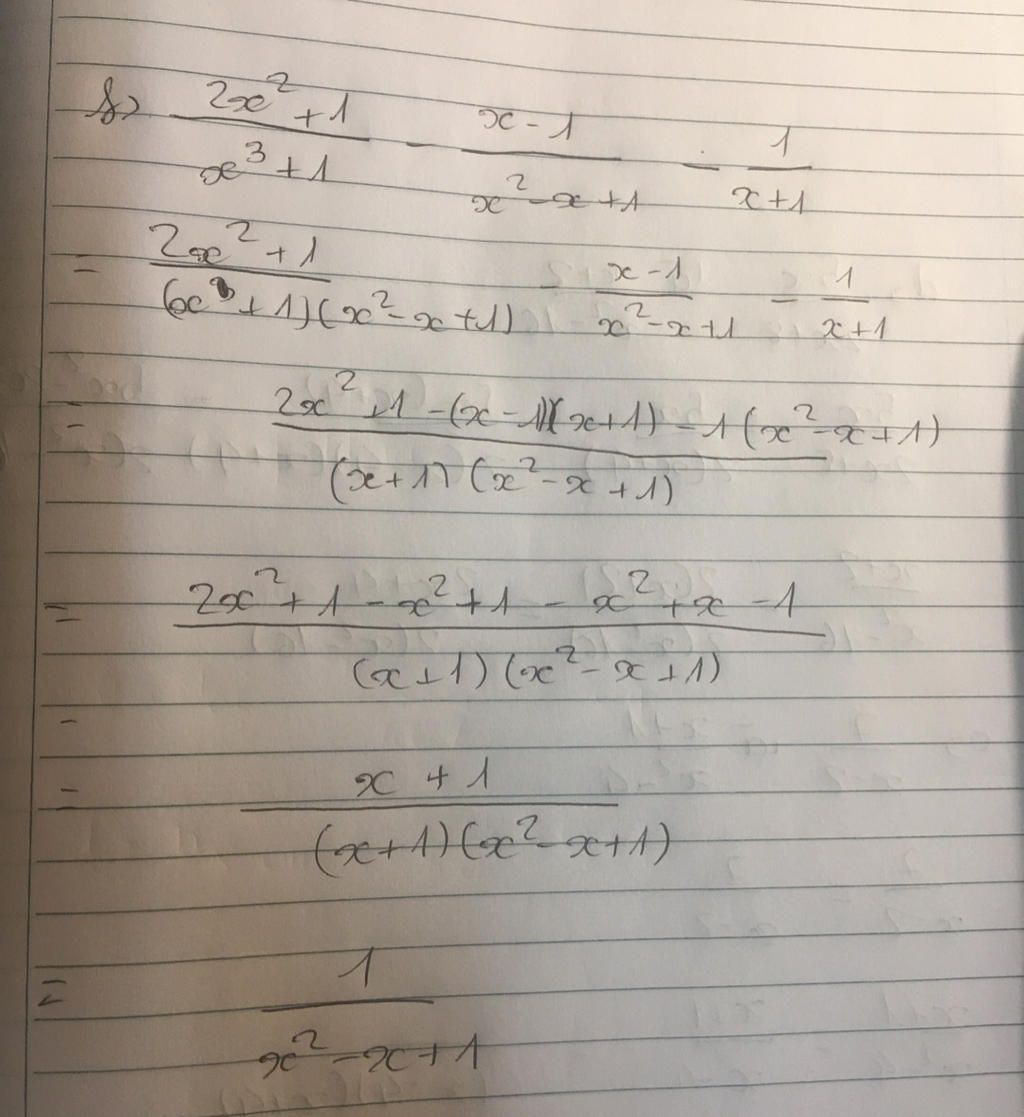 f) (2x² + 1)/(x³ + 1) - (x - 1)/(x² - x + 1) - 1/(x + 1)
= (2x² + 1)/((x + 1)(x² - x + 1)) - (x - 1)/(x² - x + 1) - 1/(x + 1)
= (2x² + 1 - (x - 1)(x + 1) - 1(x² - x + 1))/((x + 1)(x² - x + 1))
= (2x² + 1 - x² + 1 - x² + x - 1)/((x + 1)(x² - x + 1))
-
= (x + 1)/((x + 1)(x² - x + 1))
= 1/(x² - x + 1)